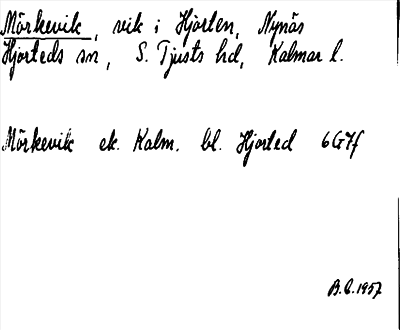 Mörkevik, vik i Hjorten, Nynäs
Hjorteds sn, S. Tjusts hd, Kalmar l.
Mörkevik ek. Kalm. bl. Hjorted 6G7f
B.L.1957